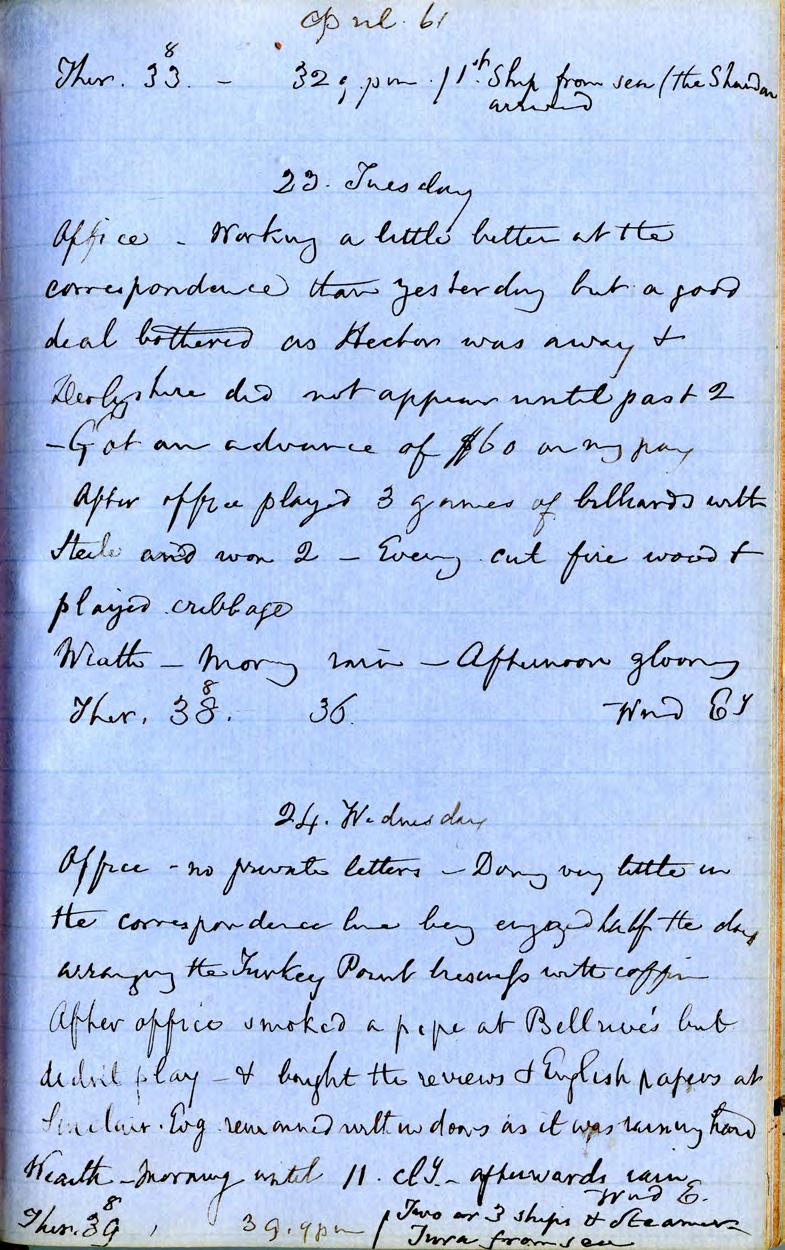 April. 61
Ther. 33. 8 - 32 9 pm. / 1st Ship from sea (the
arrived
23. Tuesday
Office - Working a little better at the
correspondence than yesterday but a good
deal bothered as Hector was away &
Derbyshire did not appear until past 2
- Got an advance of $60 on my pay
After office played 3 games of billiards with
Steele and won 2 - Eveng cut fire wood &
played cribbage
Weath - Morng rain - Afternoon gloomy
Ther. 38. 8 36. Wind Ey
24. Wednesday
Office - no private letters - Doing very little in
the correspondence line being engaged half the day
arranging the Turkey Point business with Coffin
After office smoked a pipe at Bellrive's but
didnt play - & bought the reviews & English papers at
Sinclair. Evg remained within doors as it was raining hard
Weath - Morning until 11. cly - afterwards rain
Wind E.
Ther. 39 8, 39. 9 pm / Two or 3 ships & Steamer
Jura from sea